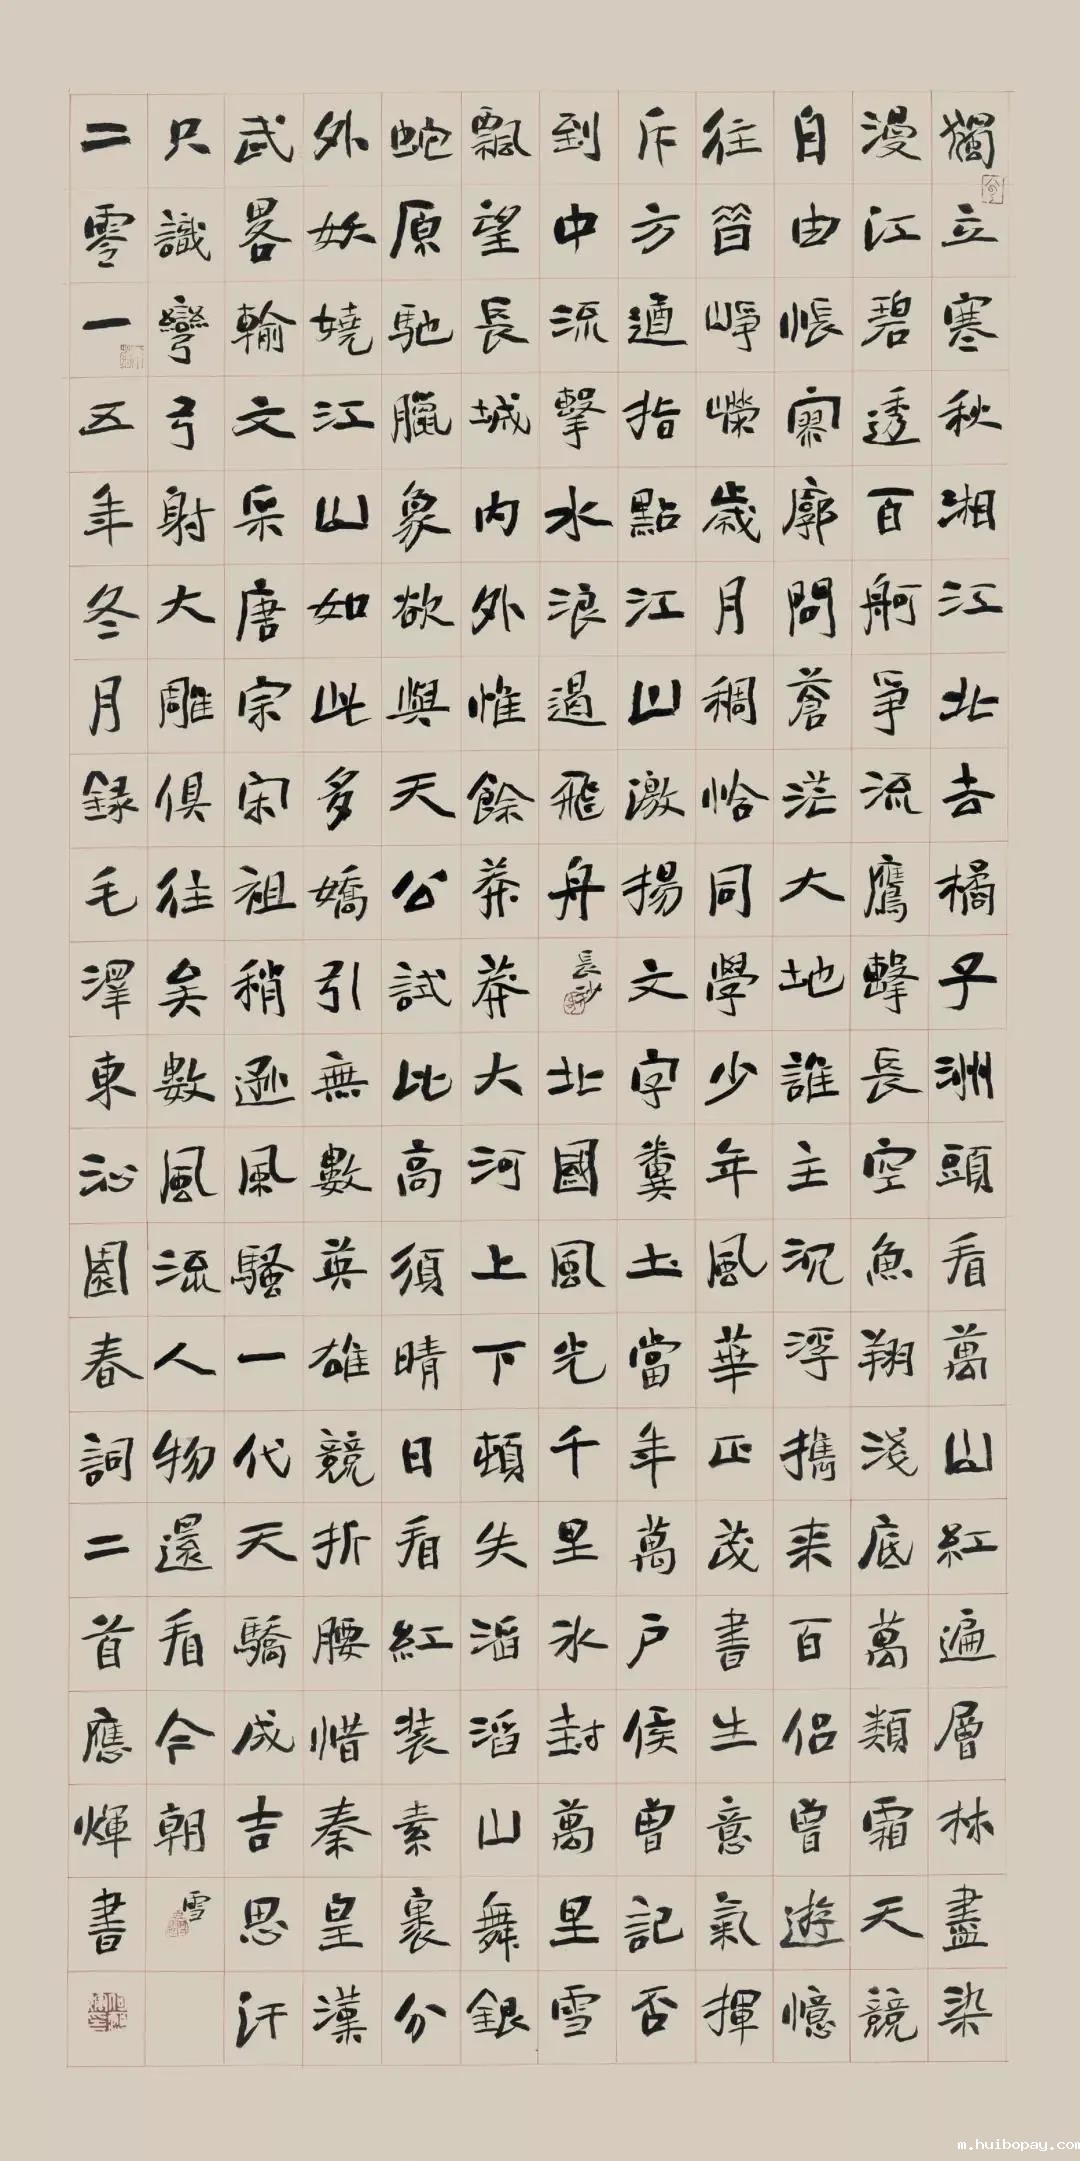 獨立寒秋湘江北去橘子洲頭看萬山紅遍層林盡染
漫江碧透百舸爭流鷹擊長空魚翔淺底萬類霜天競
自由悵寥廓問蒼茫大地誰主沉浮攜来百侶曾遊憶
往昔崢嶸歲月稠恰同學少年風華正茂書生意氣揮
斥方遒指點江山激揚文字糞土當年萬户侯曾記否
到中流擊水浪遏飛舟長沙北國風光千里冰封萬里雪
飄望長城内外惟餘莽莽大河上下頓失滔滔山舞銀
蛇原馳臘象欲與天公試比高須晴日看紅装素裹分
外妖嬈江山如此多嬌引無數英雄競折腰惜秦皇漢
武畧輸文采唐宗宋祖稍遜風騷一代天驕成吉思汗
只識彎弓射大雕俱往矣數風流人物還看今朝雪
二零一五年冬月録毛澤東沁園春詞二首應煇書
m.huibopay.com